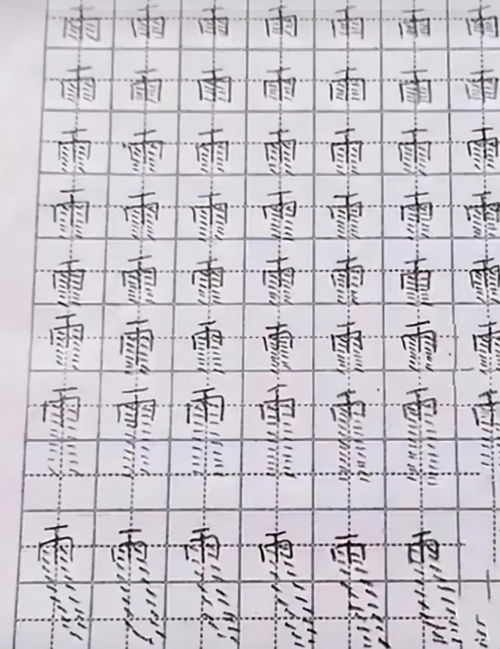 雨雨雨雨雨雨雨
雨雨雨雨雨雨雨
雨雨雨雨雨雨雨
雨雨雨雨雨雨雨
雨雨雨雨雨雨雨
雨雨雨雨雨雨雨
雨雨雨雨雨雨雨
雨雨雨雨雨雨